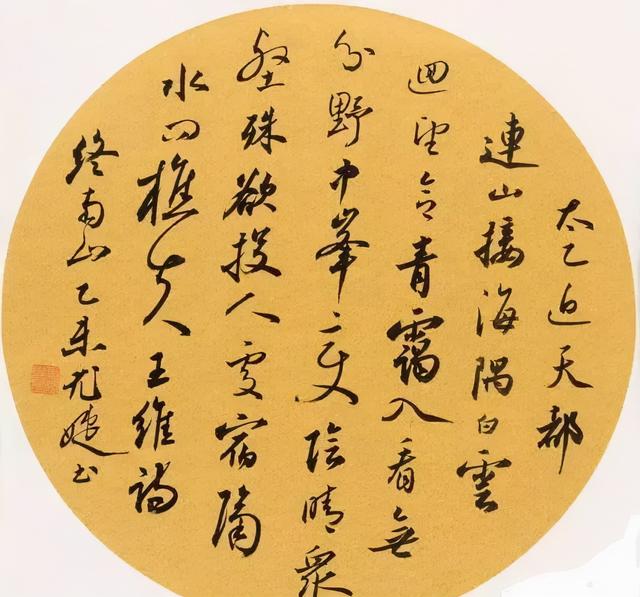 太乙近天都
連山接海隅白雲
迴望合青靄入看無
分野中峯變陰晴眾
壑殊欲投人處宿隔
水問樵夫王維詩
終南山乙未尤婕書